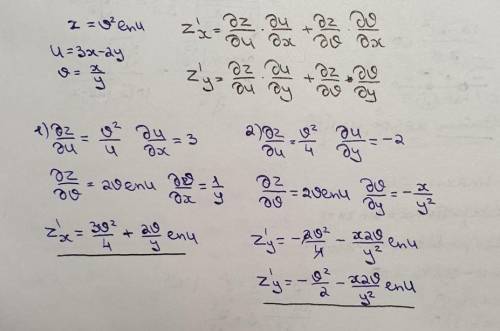 z = ϑ² ln u
u = 3x - 2y
ϑ = x/y
z'ₓ = ∂z/∂u · ∂u/∂x + ∂z/∂ϑ · ∂ϑ/∂x
z'ᵧ = ∂z/∂u · ∂u/∂y + ∂z/∂ϑ · ∂ϑ/∂y
1) ∂z/∂u = ϑ²/u ∂u/∂x = 3
∂z/∂ϑ = 2ϑ ln u ∂ϑ/∂x = 1/y
z'ₓ = 3ϑ²/4 + 2ϑ/y ln u
2) ∂z/∂u = ϑ²/4 ∂u/∂y = -2
∂z/∂ϑ = 2ϑ ln u ∂ϑ/∂y = -x/y²
z'ᵧ = -2ϑ²/4 - x2ϑ/y² ln u
z'ᵧ = -ϑ²/2 - x2ϑ/y² ln u